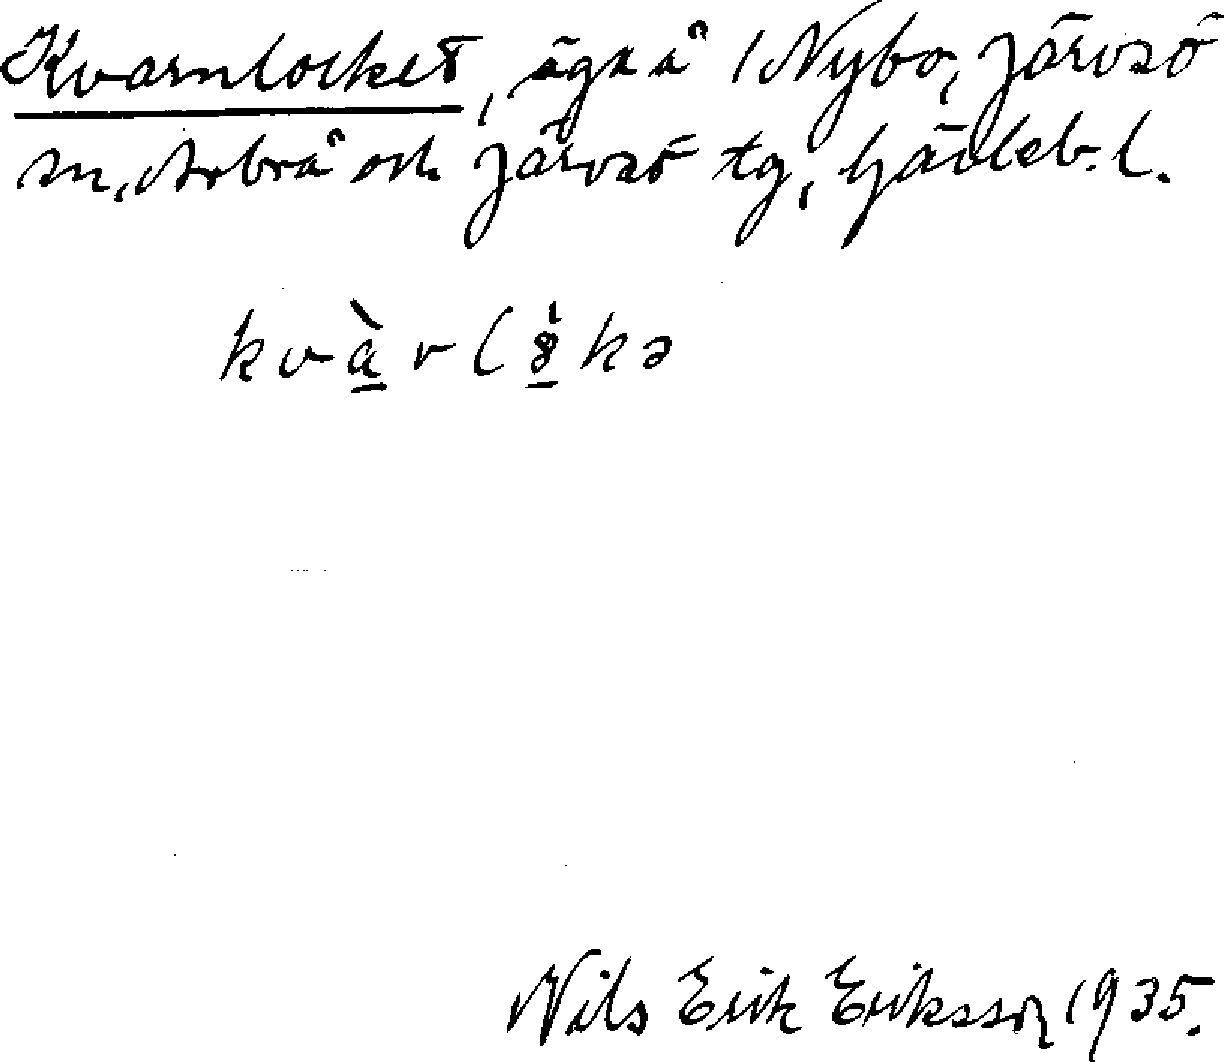 Kvarnlocket, äga å 1 Nybo, Järvsö
sn, Arbrå och Järvsö tg, Gävleb. l.
kvàrlòkə
Nils Erik Eriksson 1935.